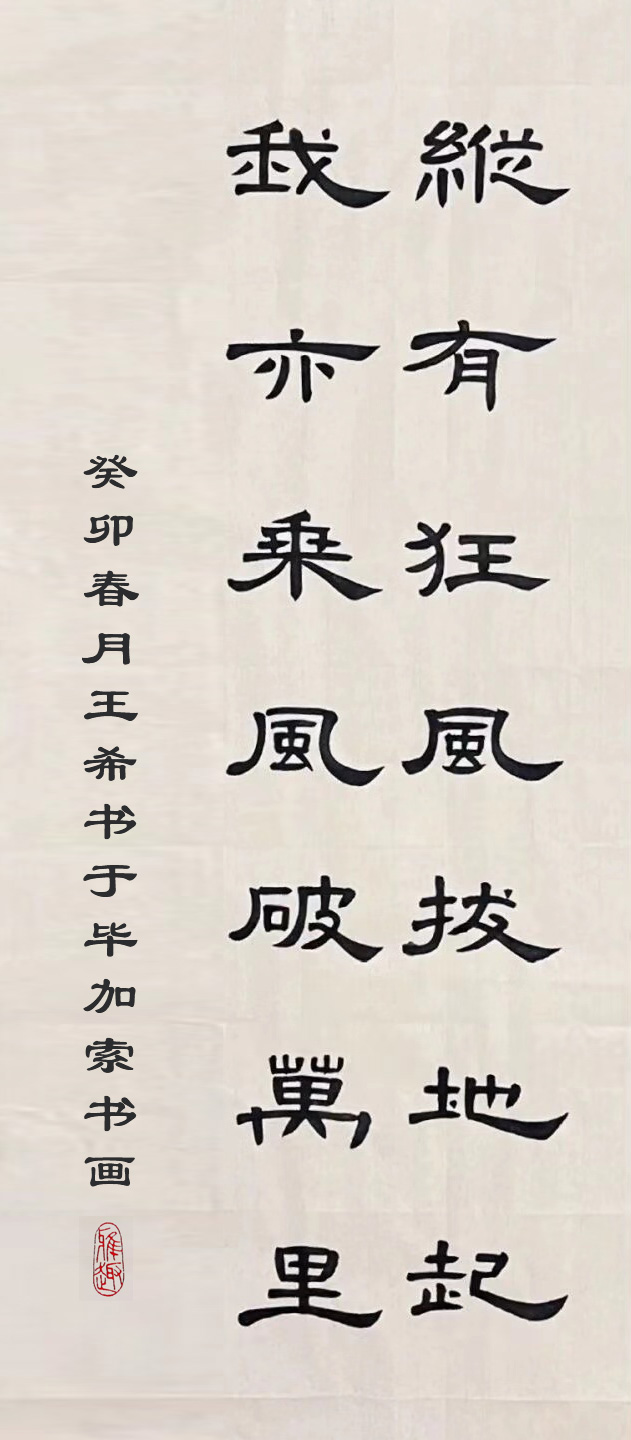 縱有狂風拔地起
我亦乘風破萬里
癸卯春月王希书于毕加索书画
雅趣